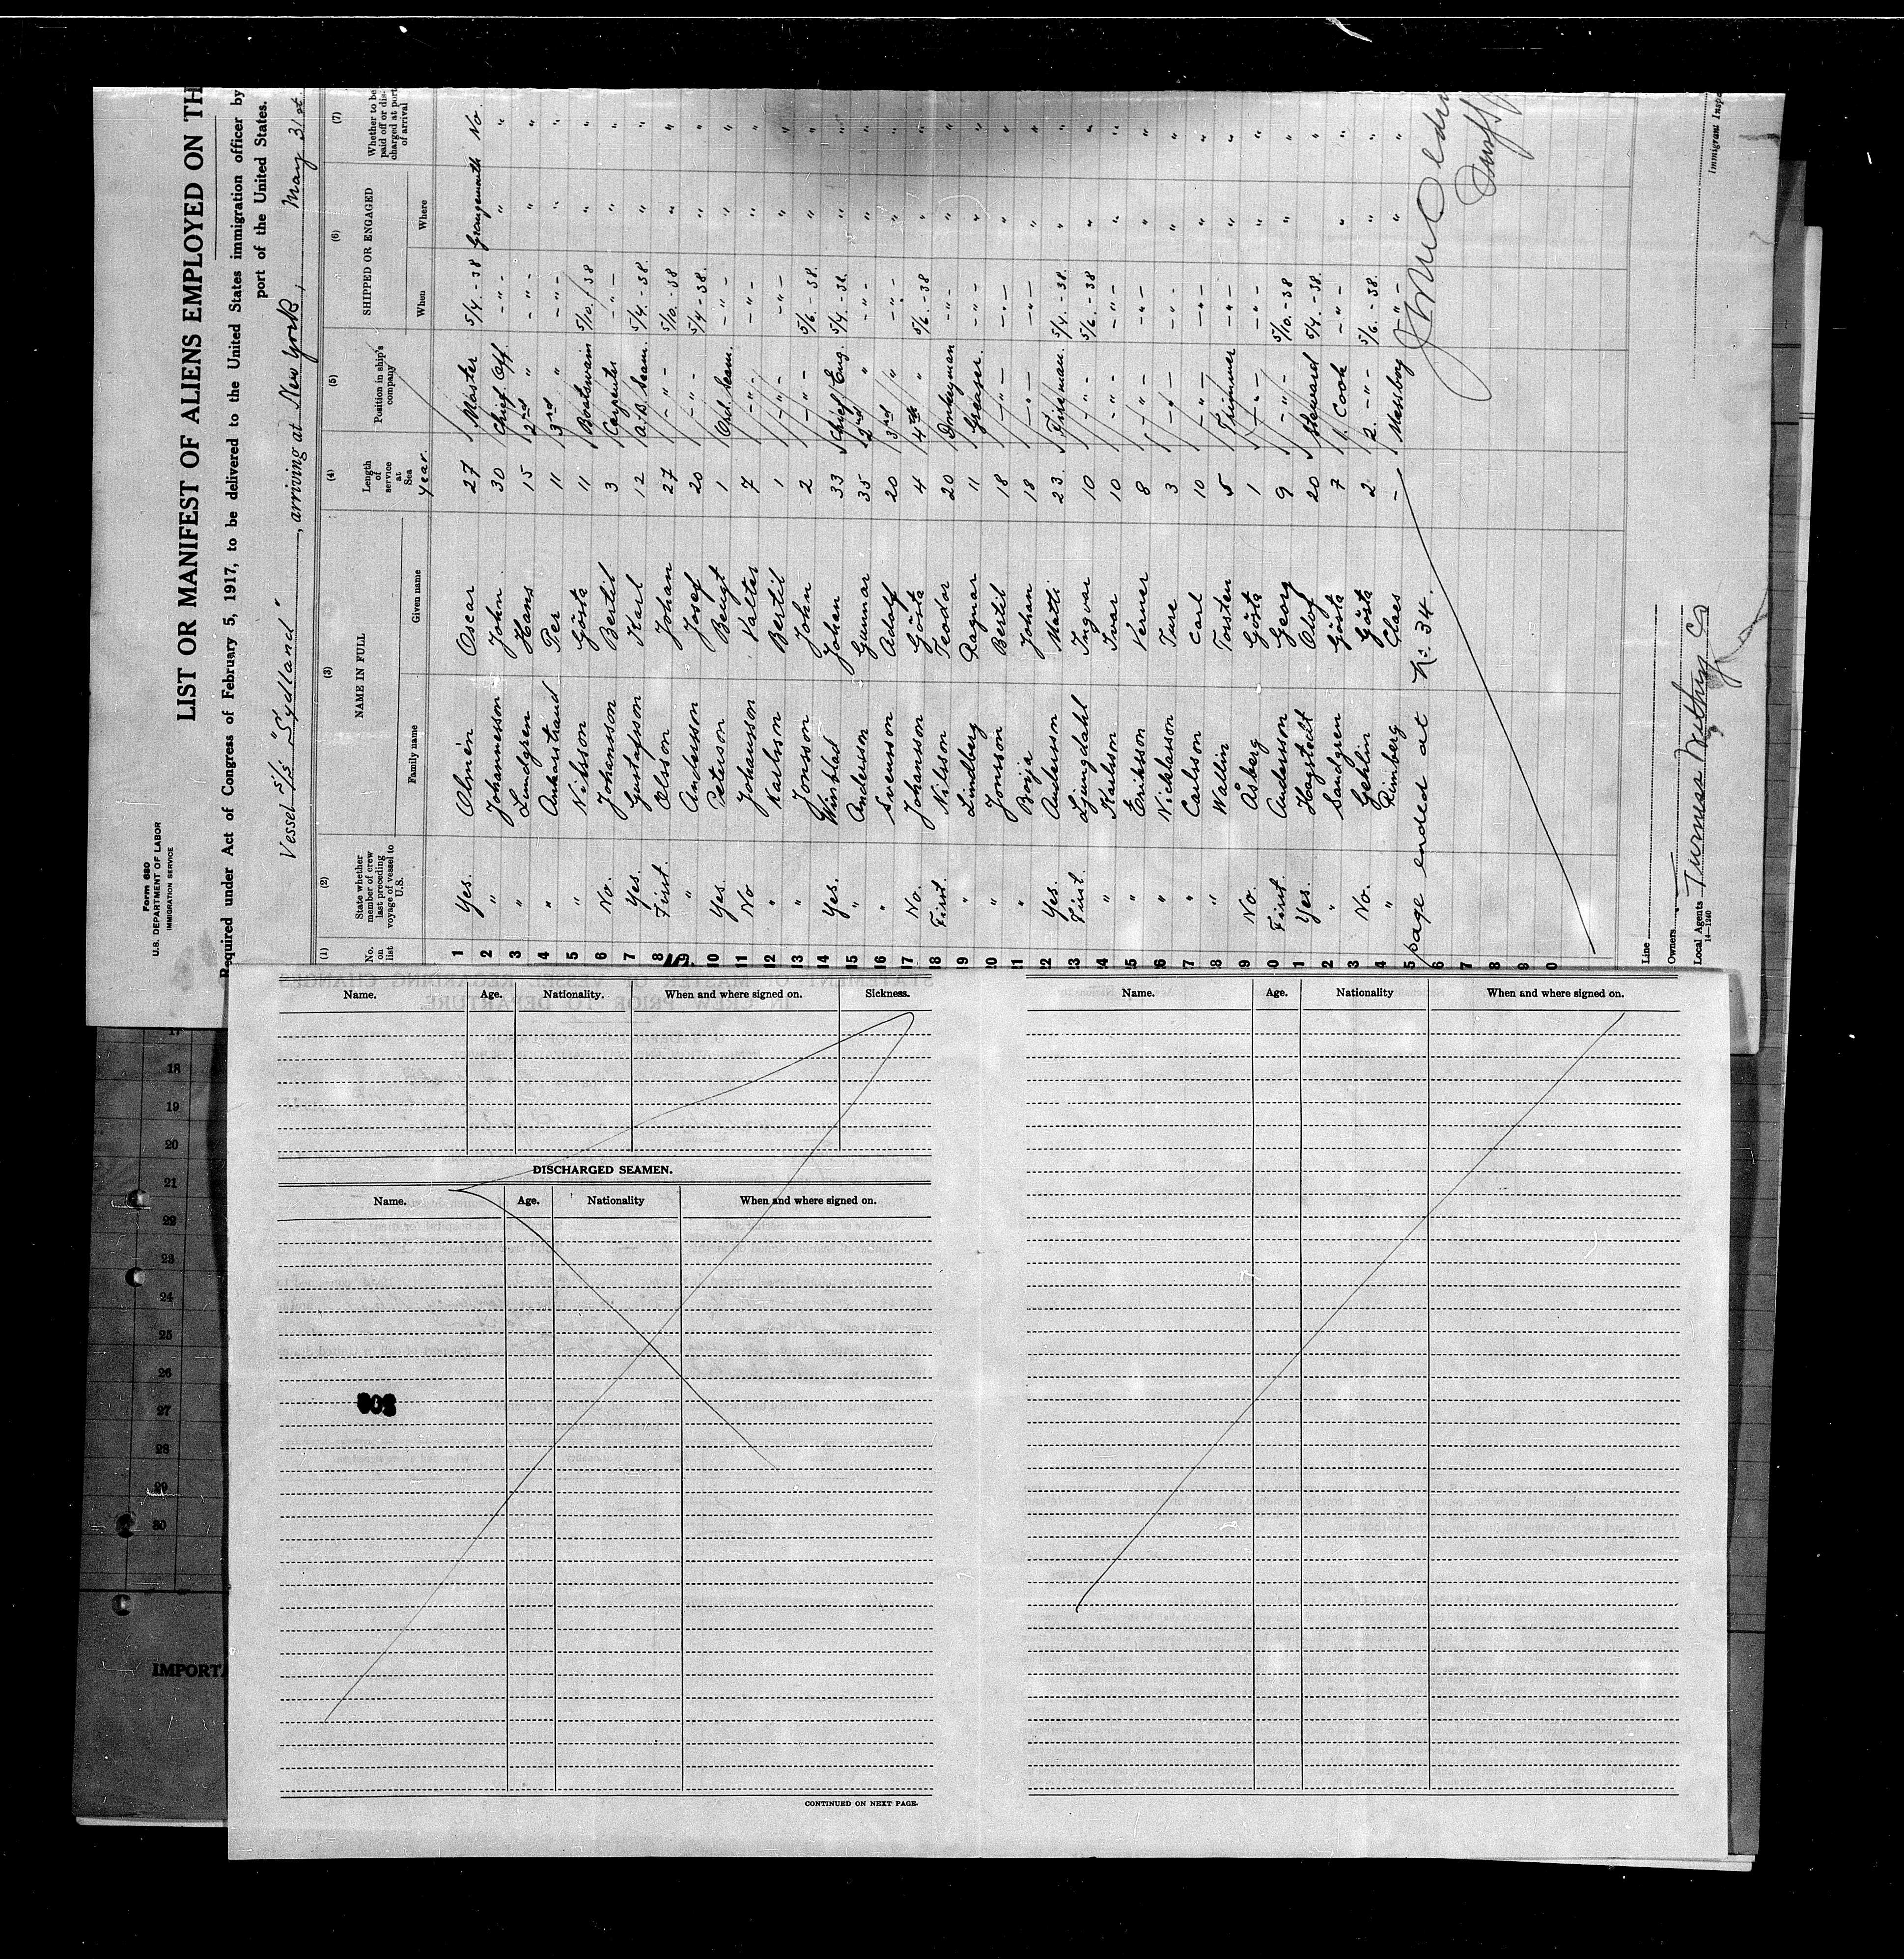 Form 680
U.S. DEPARTMENT OF LABOR
IMMIGRATION SERVICE
LIST OR MANIFEST OF ALIENS EMPLOYED ON TH
Required under Act of Congress of February 5, 1917, to be delivered to the United States immigration officer by
port of the United States.
Vessel S/S "Sydland", arriving at New York, May 31st.
(1) (2) (3) (4) (5) (6) (7)
No. on list State whether member of crew last preceding voyage of vessel to U.S. NAME IN FULL Family name Given name Length of service at Sea Year. Position in ship's company SHIPPED OR ENGAGED When Where Whether to be paid off or discharged at port of arrival
1 Yes. Olmén Oscar 27 Master 5/4.-38 Grangemouth No.
2 " Johannesson John 30 Chief Off. -"- " "
3 " Lundgren Hans 15 2nd " -"- " "
4 " Ankerstrand Per 11 3rd " -"- " "
5 " Nilsson Gösta 11 Boatswain 5/10.-38 " "
6 No. Johansson Bertil 3 Carpenter -"- " "
7 Yes. Gustafsson Karl 12 A.B. Seam. 5/4.-38. " "
8 First. Olsson Johan 27 -"- 5/10.-38 " "
9 " Andersson Josef 20 -"- 5/4-38. " "
10 Yes. Peterson Bengt 1 Ord. Seam. -"- " "
11 No Johansson Valter 7 -"- -"- " "
12 " Karlsson Bertil 1 -"- -"- " "
13 " Jonsson John 2 -"- 5/6.-38. " "
14 Yes. Winblad Johan 33 Chief Eng. 5/4.-38. " "
15 " Andersson Gunnar 35 2nd " -"- " "
16 " Svensson Adolf 20 3rd " -"- " "
17 No. Johansson Gösta 4 4th " 5/6.-38 " "
18 First. Nilsson Teodor 20 Donkeyman -"- " "
19 " Lindberg Ragnar 11 Greaser. -"- " "
20 " Jonsson Bertil 18 -"- -"- " "
21 " Boija Johan 18 -"- -"- " "
22 Yes. Andersson Matti 23. Fireman. 5/4.-38. " "
23 First. Ljungdahl Ingvar 10 -"- 5/6.-38 " "
24 " Karlsson Ivar 10 -"- -"- " "
25 " Eriksson Verner 8 -"- -"- " "
26 " Nicklasson Ture 3 -"- -"- " "
27 " Carlsson Carl 10 -"- -"- " "
28 " Wallin Torsten 5 Trimmer -"- " "
9 No. Åsberg Gösta 1 -"- -"- " "
0 First. Andersson Georg 9 -"- 5/10.-38 " "
1 Yes. Hagstedt Olof 20 Steward 5/4.-38. "
2 " Sandgren Gösta 7 1. Cook -"- " "
3 No. Gehlin Gösta 2. 2. -"- 5/6.-38. " "
4 " Rimberg Claes - Messboy -"- " "
5 page ended at No: 34.
6
7
8
9
0
Line
Owners
Local Agents
14—1240
Immigrant Inspe
Name. Age. Nationality. When and where signed on. Sickness.
DISCHARGED SEAMEN.
Name. Age. Nationality When and where signed on.
CONTINUED ON NEXT PAGE.
Name. Age. Nationality When and where signed on.
17
18
19
20
21
22
23
24
25
26
27
28
29
30
IMPORTA